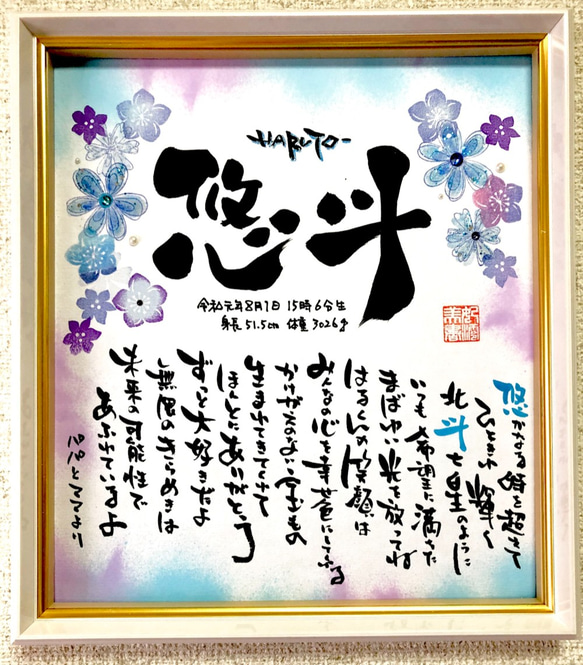 -HARUTO-
悠斗
令和元年8月1日 15時6分生
身長51.5cm 体重3026g
悠かなる時を超えて
ひときわ輝く
北斗七星のように
いつも希望に満ちた
まばゆい光を放ってね
はるくんの笑顔は
みんなの心を幸せ色にしてくれる
かけがえのない宝もの
生まれてきてくれて
ほんとにありがとう
ずっと大好きだよ
無限のきらめきは
未来の可能性で
あふれているよ
パパとママより